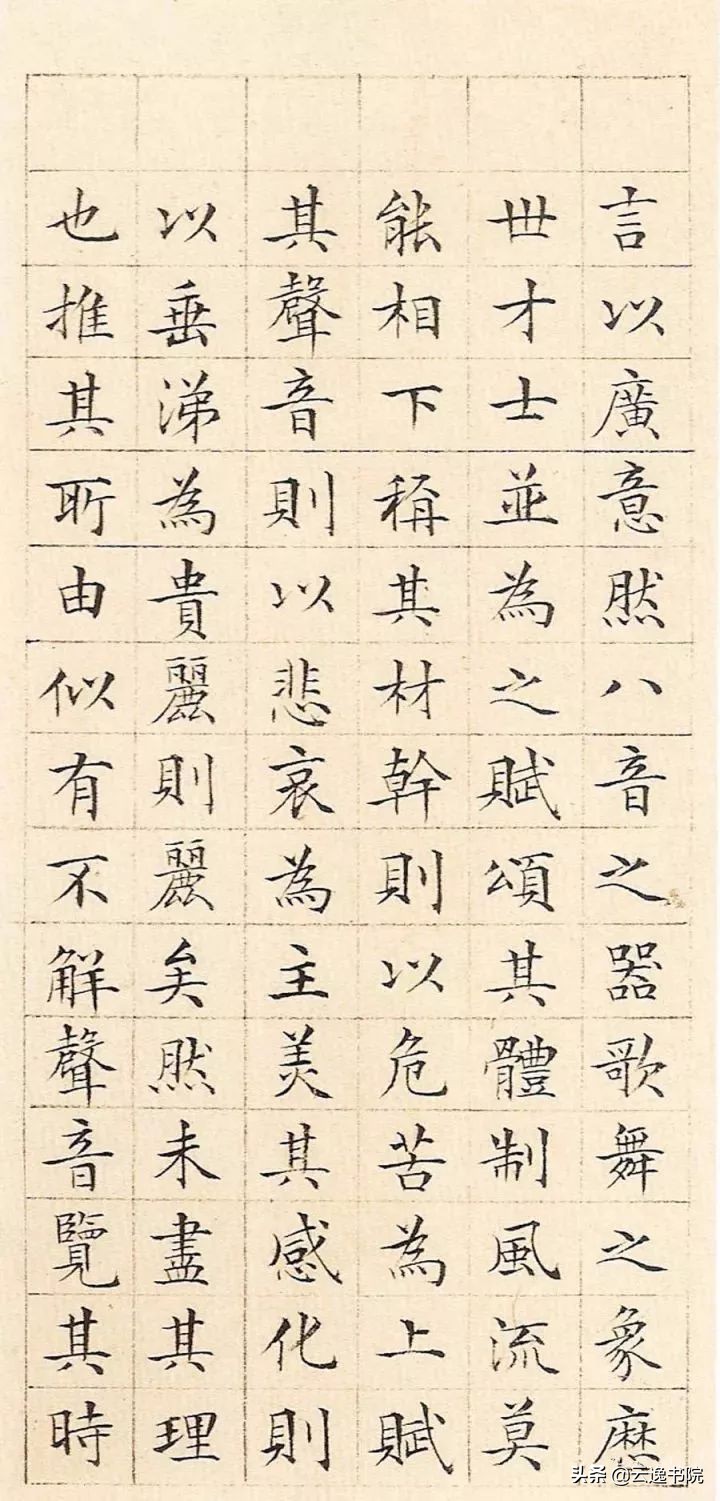 言以廣意然八音之器歌舞之象歷
世才士並為之賦頌其體制風流莫
能相下稱其材幹則以危苦為上賦
其聲音則以悲哀為主美其感化則
以垂涕為貴麗則麗矣然未盡其理
也推其所由似有不解聲音覽其時
头条@云逸书院